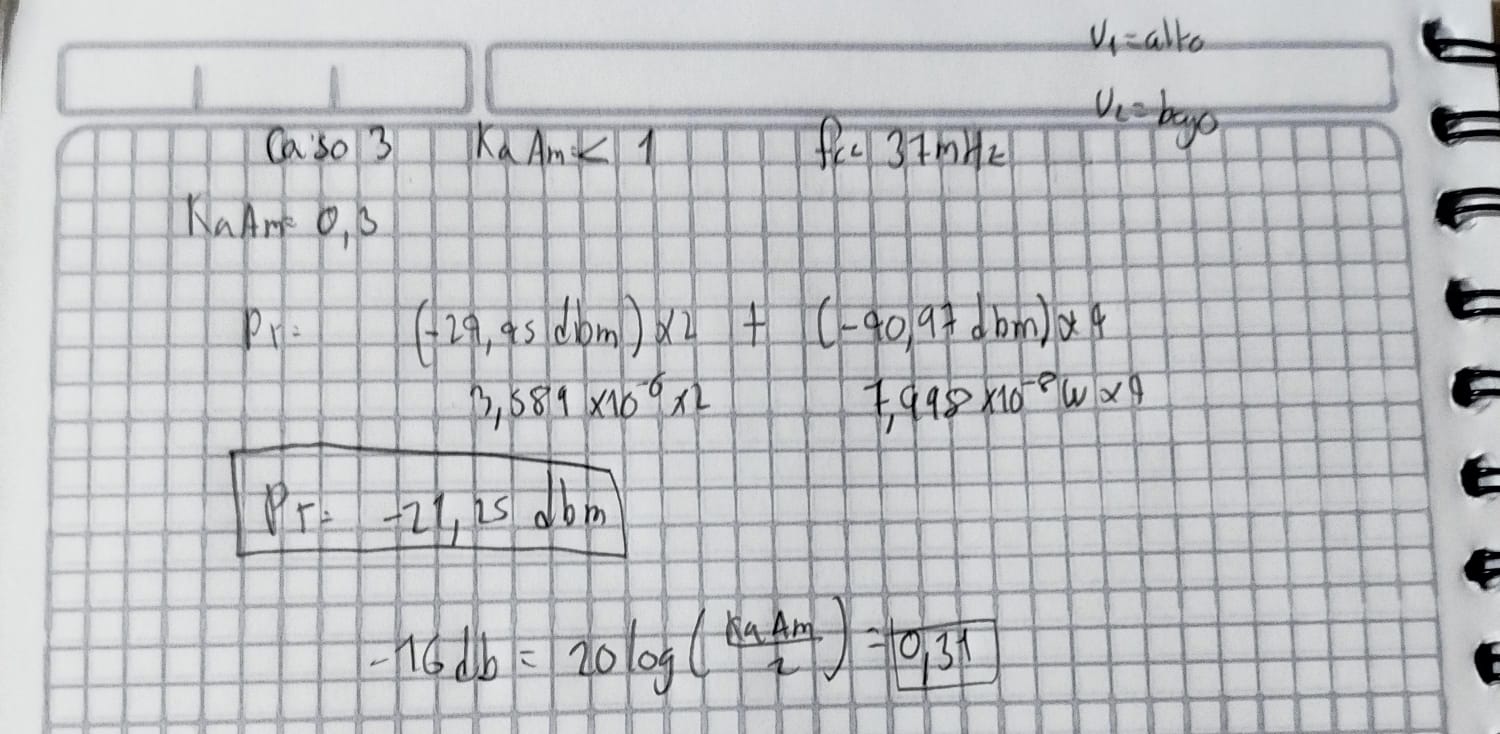 V1=alto
V2=bajo
Caso 3 KaAm < 1 fc= 37mHz
KaAm= 0,3
Pr= (-29,45 dbm) x2 + (-40,97 dbm) x 4
3,589 x10^-6 x2 7,998 x10^-8 W x 4
Pr= -21,25 dbm
-16 db = 20 log ( KaAm / 2 ) = 0,31